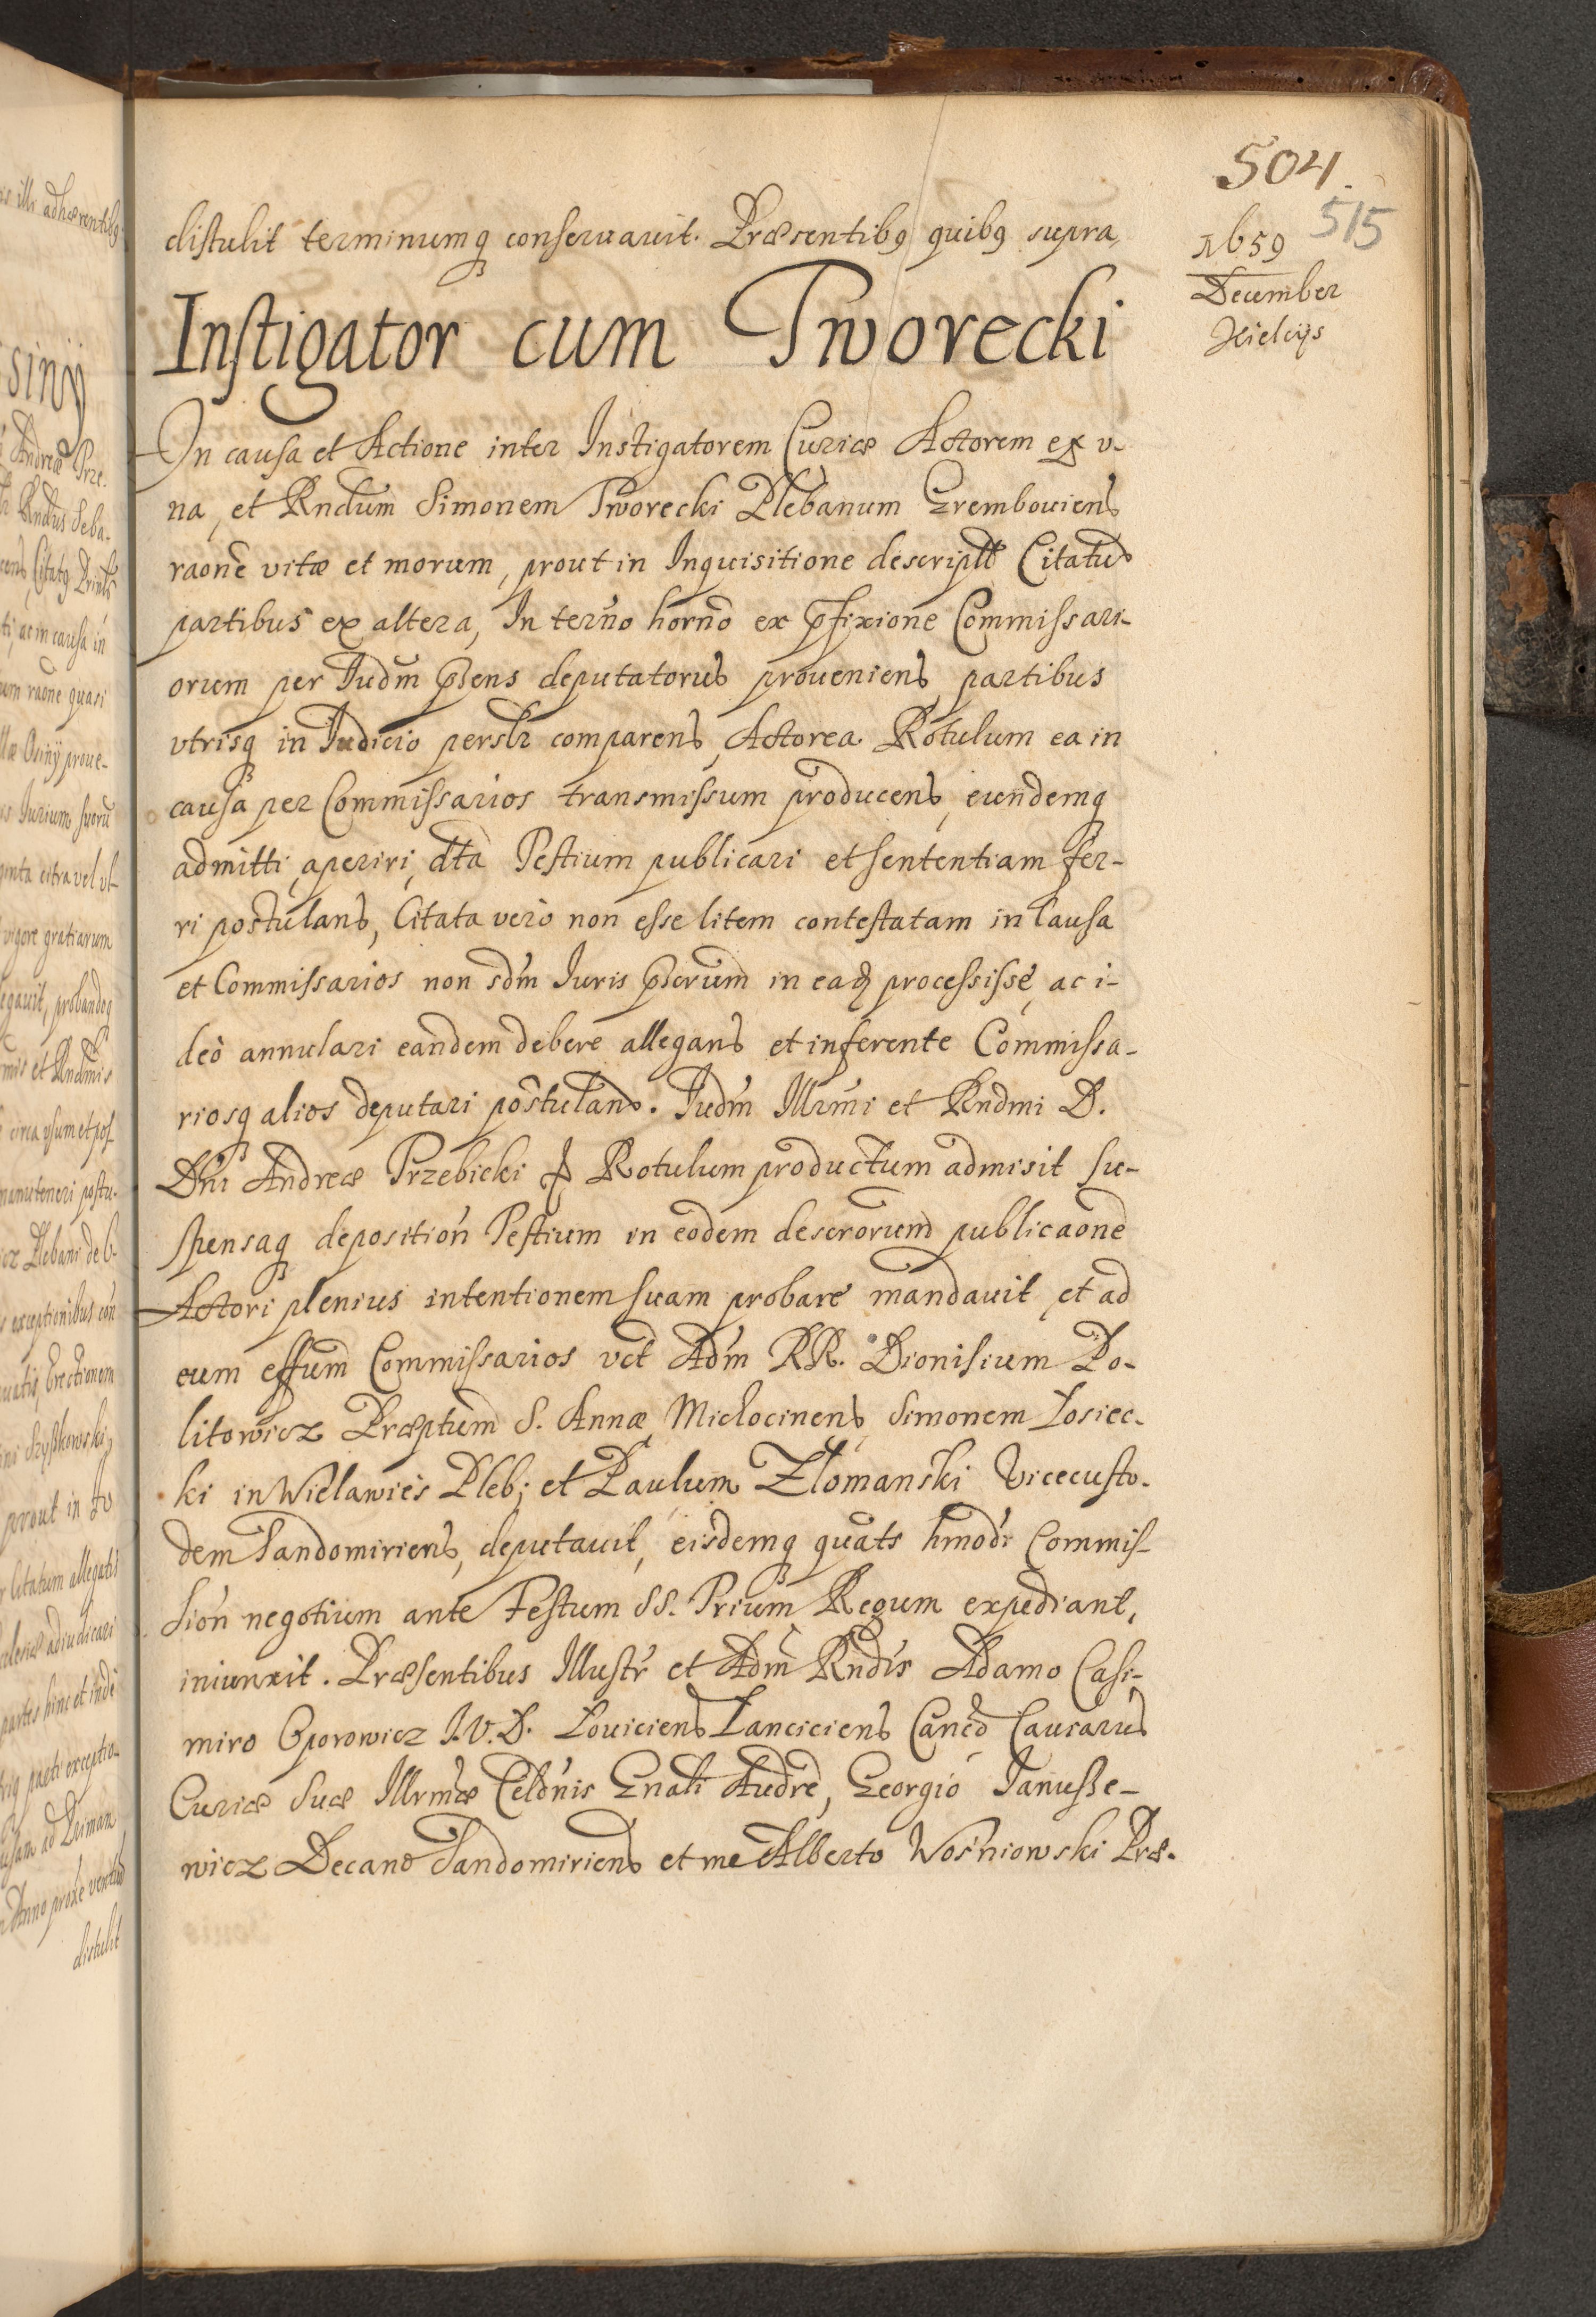 504.
515
1659
December
Kielcijs
distulit terminumq conseruauit. Præsentibq quibq supra,
Instigator cum Tworecki
In causa et Actione inter Instigatorem Curiæ Actorem ex v-
na, et Rndum Simonem Tworecki Plebanum Grembouiens
raone vitæ et morum, prout in Inquisitione descriptt Citatum
partibus ex altera, In terno horno ex pfixione Commissari-
orum per Iudm Pns deputatorum proueniens partibus
vtrisq in Iudicio perslr comparens, Actorea Rotulum ea in
causa per Commissarios transmissum producens, eundemq
admitti, aperiri, dta Testium publicari et sententiam fer-
ri postulans, Citata verò non esse litem contestatam in Causa
et Commissarios non sdm Iuris pscrum in eadem processisse, ac i-
deò annulari eandem debere allegans et inferente Commissa-
riosq alios deputari postulans. Iudm Illrmi et Rndmi D.
Dni Andreæ Trzebicki Rotulum productum admisit su-
spensaq deposition Testium in eodem descrorum publicaone
Actori plenius intentionem suam probare mandauit, et ad
eum effum Commissarios vct Adm RR. Dionisium Po-
litowicz Præptum S. Annæ Miclocinens, Simonem Losiec-
ki in Wielawies Pleb; et Paulum Zlomanski Vicecusto-
dem Sandomiriens, deputauit, eisdemq quats hmodi Commis-
sion negotium ante Festum SS. Trium Regum expediant,
iniunxit. Præsentibus Illustr et Adm Rndis Adamo Casi-
miro Oporowicz I.V.D. Louiciens Lanciciens Cancd Causarum
Curiæ Suæ Illrmæ Celdnis Gnali Audre, Georgio Ianusse-
wicz Decano Sandomiriens et me Alberto Wosniowski Præ-